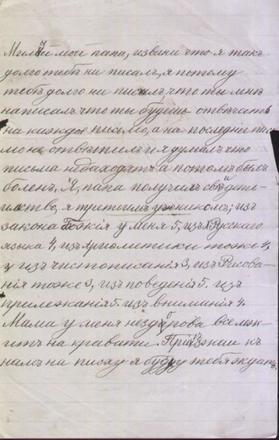 Милый мой папа, извени что я такъ
долго тебѣ ни писалъ, я потому
тебѣ долго ни писалъ что ты мнѣ
написалъ что ты будешь отвѣчать
на кажды письмо, а на последни
мо не отвѣтилъ и я думалъ что
письма недаходятъ а потомъ былъ
боленъ. Я, папа получилъ свѣдѣте
льство, я третимъ ученикомъ; изъ
закона Божія у меня 5, изъ Рускаго
языка 4, изъ ариѳметики тоже 4,
изъ чистописанія 3, изъ Рисова-
нія тоже 3, изъ поведенія 5, изъ
прилежанія 5 изъ вниманія 4.
Мама у меня нездорова все ле
житъ на кравати. Приезжаи къ
намъ на пасху я буду тебя ждать.